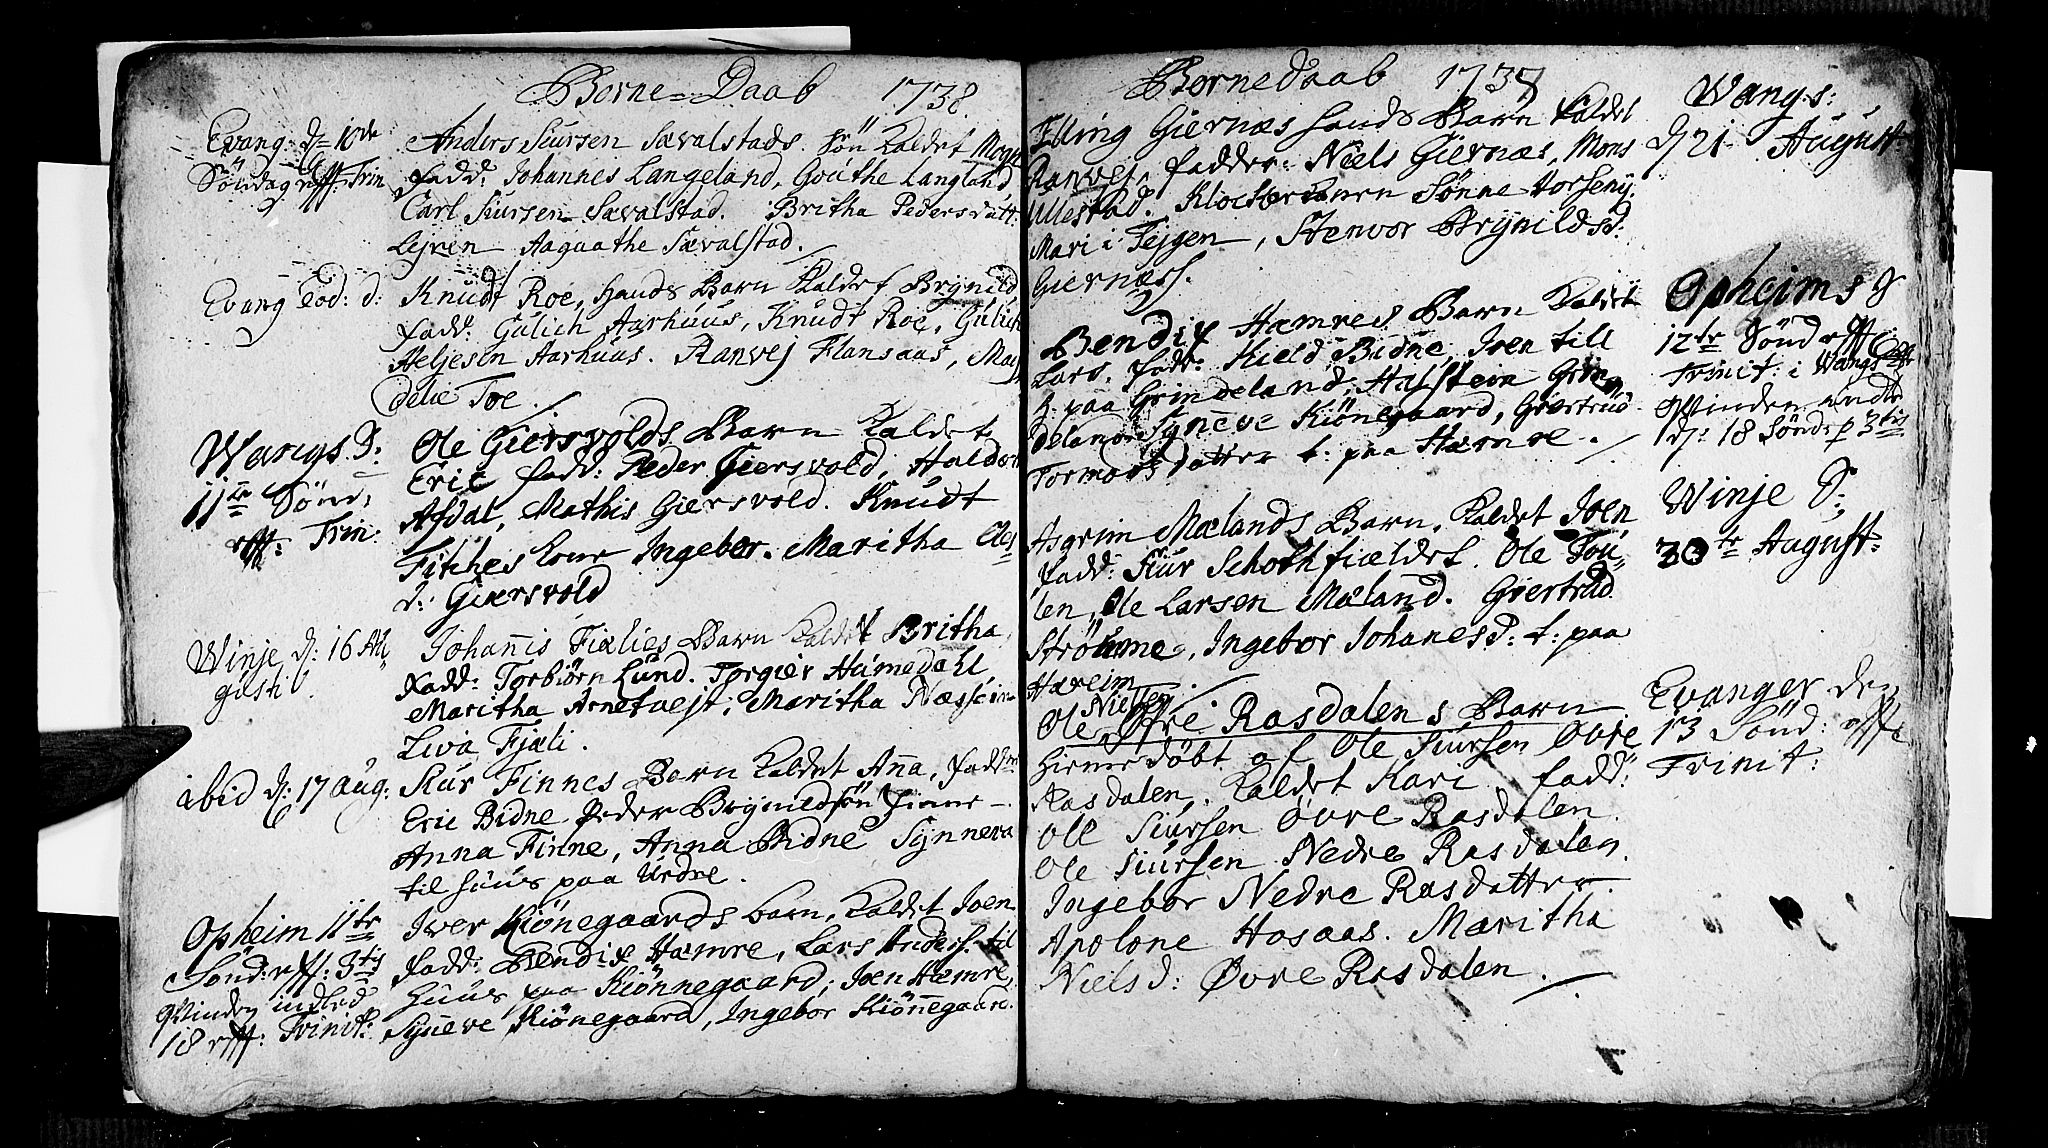 Børne-Daab 1738
Evang: d: 10de
Søndag eff. Trin
Anders Siursen Sævalstads. Søn Kaldet Mogn
fadd: Johannes Langeland, Gouthe Langland
Carl Siursen Sævalstad. Britha Pedersdatt
Lejren Aagaathe Sævalstad.
Evang Eod: d:
Knudt Roe, hands Barn Kaldet Brynild
fadd: Gulich Aarhuus, Knudt Roe, Gulich
Heljesen Aarhuus. Ranvej Flansaas, Mag
delie Toe.
Wangs S:
11te Sønd:
eff: Trin:
Ole Giersvolds Barn Kaldet
Eric fadd: Peder Giersvold, Haldor
Afdal, Mathis Giersvold. Knudt
Fitkies Ingebor. Maritha Oles
d: Giersvold
Winje d: 16 Au
gusti
Johannis Fiælies Barn Kaldet Britha
fadd: Torbiørn Lund. Torgier Humedahl
Maritha Arnetvejt, Maritha Næsheim
Liva Fjæli.
ibid d: 17 Aug:
Siur Finnes Barn Kaldet Anna, fadd
Eric Bidne Peder Brynildsøn Finne
Anna Finne, Anna Bidne Synneva
til huus paa Urdre.
Opheim 11te
Sønd: eff: 3tis
Qvinden indled
18 eff: Trinit:
Iver Kiønegaards barn, Kaldet Joen
fadd: Bendix Hæmre, Lars Anders. til
huus paa Kiønnegaard; Joen Hæmre
Syneve Kiønegaard, Ingebor Kiønnegaard.
Børnedaab 1738
Elling Giernæs hands Barn Kaldet
Ranvej, fadder: Niels Giernæs, Mons
Ullestad. Klocheren Sønne Horseny
Mari i Tejgen, Stenvor Brynildsd:
Giernæss.
Wangs:
d 21 August
Bendix Hæmres Barn Kaldet
Lars. fadd: Kield Bidne, Joen till
h. paa Grindeland, Halstein Grin
deland Syneve Kiønegaard, Giertrud
Tormods datter t: paa Hæmre.
Opheims S
12te Sønd eff
Trinit: i Wangs
Qvinden indle
d: 18 Sønd: p 3tis
Asgrim Mælands Barn, Kaldet Joen
fadd: Siur Schothfieldet. Ole Tou
len, Ole Larsen Mæland. Giertrud
Strømme, Ingebor Johanesd: t: paa
Hæreim.
Winje S:
30te August
Ole Nielsen Øfre Rasdalens Barn
Hiemedøbt af Ole Siursen Øvre
Rasdalen, Kaldet Kari. fadd:
Ole Siursen Øvre Rasdalen.
Ole Siursen Nedre Rasdalen.
Ingebor Nedre Rasdatter.
Apolone Hosaas. Maritha
Niels d: Øvre Rasdalen.
Evanger den
13 Sønd: eff
Trinit: